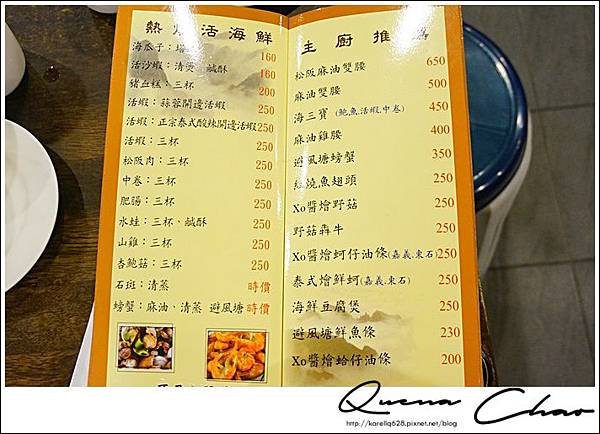 熱 活海鮮
海瓜子：塔 160
活沙蝦：清燙、鹹酥 160
豬血糕：三杯 200
活蝦：蒜蓉開邊活蝦 250
活蝦：正宗泰式酸辣開邊活蝦 250
活蝦：三杯 250
松阪肉：三杯 250
中卷：三杯 250
肥腸：三杯 250
水蛙：三杯、鹹酥 250
山雞：三杯 250
杏鮑菇：三杯 250
石斑：清蒸 時價
螃蟹：麻油、清蒸 避風塘 時價
主廚推
松阪麻油雙腰 650
麻油雙腰 500
海三寶 (鮑魚.活蝦.中卷) 450
麻油雞腰 400
避風塘螃蟹 350
紅燒魚翅頭 250
Xo醬燴野菇 250
野菇犇牛 250
Xo醬燴蚵仔油條(嘉義.東石) 250
泰式燴鮮蚵(嘉義.東石) 250
海鮮豆腐煲 250
避風塘鮮魚條 230
Xo醬燴蛤仔油條 200
Quena Chao
http://karellq628.pixnet.net/blog